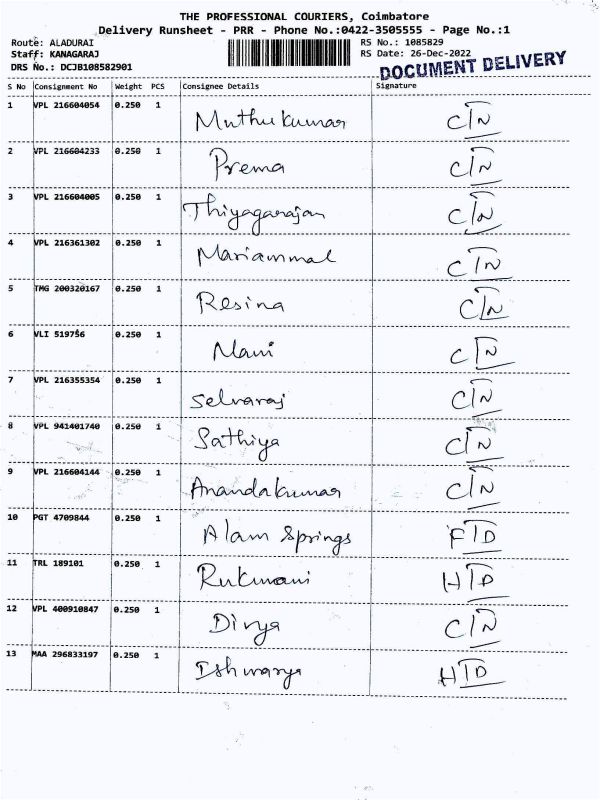 THE PROFESSIONAL COURIERS, Coimbatore
Delivery Runsheet - PRR - Phone No.:0422-3505555 - Page No.:1
Route: ALADURAI RS No.: 1085829
Staff: KANAGARAJ RS Date: 26-Dec-2022
DRS No.: DCJB108582901 DOCUMENT DELIVERY
S No Consignment No Weight PCS Consignee Details Signature
1 VPL 216604054 0.250 1 Muthukumar C/N
2 VPL 216604233 0.250 1 Prema C/N
3 VPL 216604005 0.250 1 Thiyagarajan C/N
4 VPL 216361302 0.250 1 Mariammal C/N
5 TMG 200320167 0.250 1 Resina C/N
6 VLI 519756 0.250 1 Mani C/N
7 VPL 216355354 0.250 1 Selvaraj C/N
8 VPL 941401740 0.250 1 Sathiya C/N
9 VPL 216604144 0.250 1 Anandakumar C/N
10 PGT 4709844 0.250 1 Alam Springs F/D
11 TRL 189101 0.250 1 Rukmani H/D
12 VPL 400910847 0.250 1 Divya C/N
13 MAA 296833197 0.250 1 Ishwarya H/D